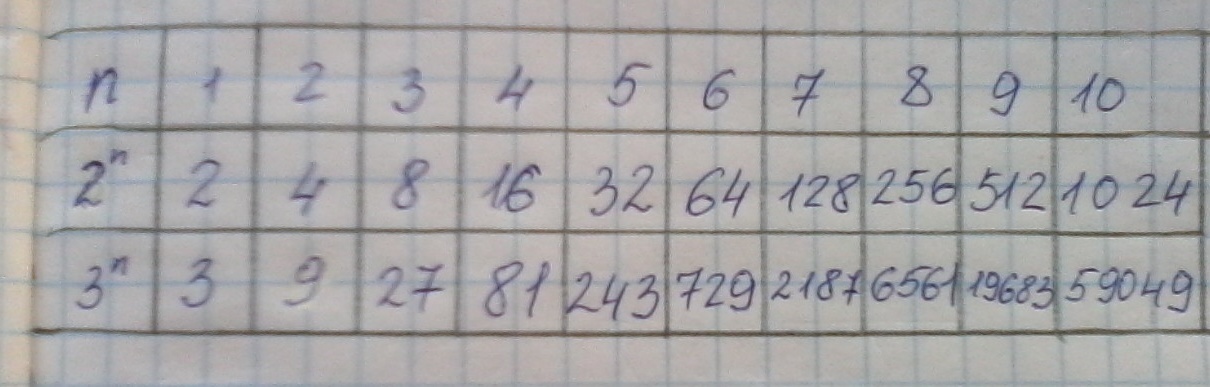 n 1 2 3 4 5 6 7 8 9 10
2ⁿ 2 4 8 16 32 64 128 256 512 1024
3ⁿ 3 9 27 81 243 729 2187 6561 19683 59049